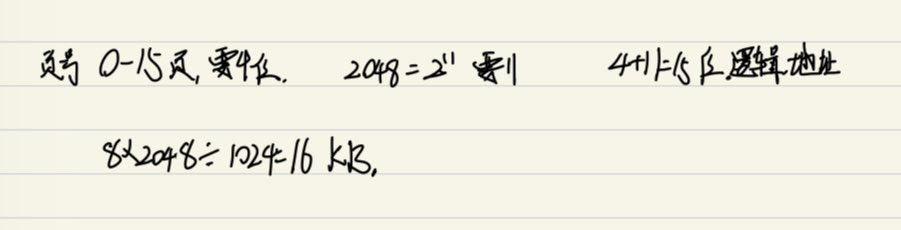 页号 0-15页, 需4位. 2048=2¹¹ 需11 4+11=15位 逻辑地址
8×2048÷1024=16 KB.